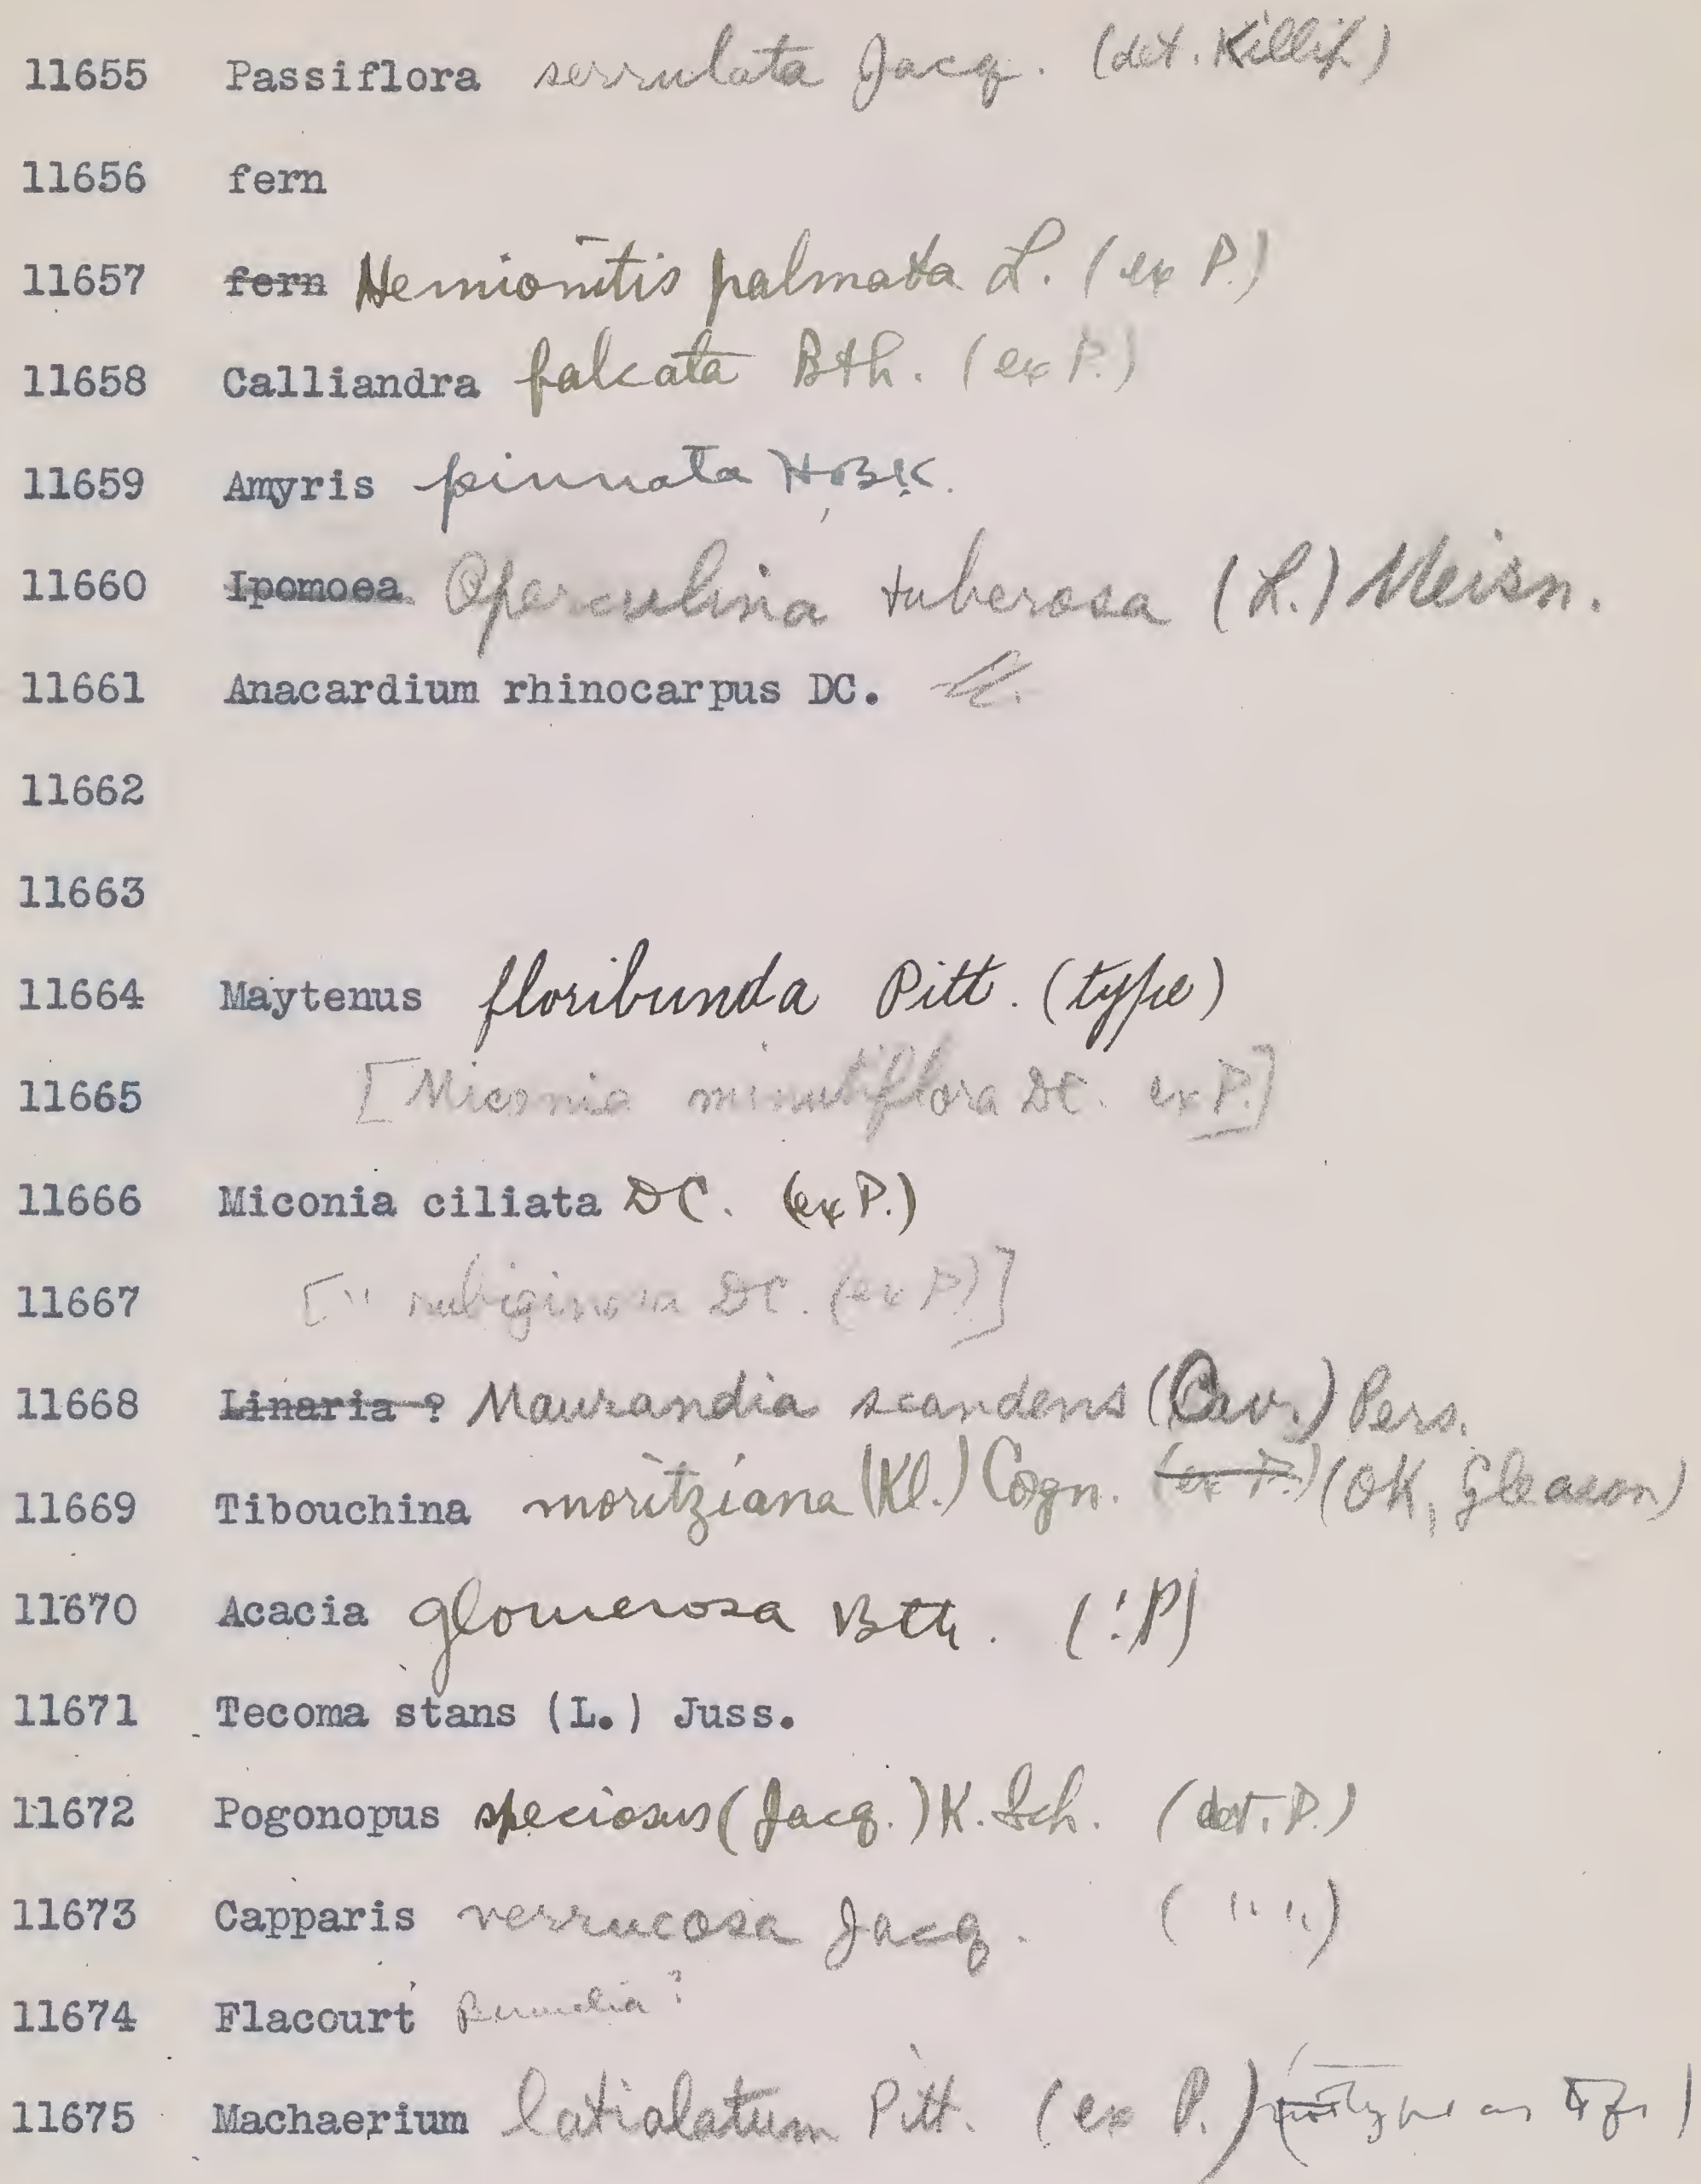 11655 Passiflora serrulata Jacq. (det. Killip)
11656 fern
11657 fern Hemionitis palmata L. (ex P.)
11658 Calliandra falcata Bth. (ex P.)
11659 Amyris pinnata HBK.
11660 Ipomoea Operculina tuberosa (L.) Meisn.
11661 Anacardium rhinocarpus DC.
11662
11663
11664 Maytenus floribunda Pitt. (type)
11665 [Miconia minutiflora DC. ex P.]
11666 Miconia ciliata DC. (ex P.)
11667 [" rubiginosa DC. (ex P)]
11668 Linaria ? Maurandia scandens (Cav.) Pers.
11669 Tibouchina moritziana (Kl.) Cogn. (ex P.) (OK, Gleason)
11670 Acacia glomerosa Bth. (!P)
11671 Tecoma stans (L.) Juss.
11672 Pogonopus speciosus (Jacq.) K. Sch. (det. P.)
11673 Capparis verrucosa Jacq. ( " " )
11674 Flacourt Bumelia ?
11675 Machaerium latialatum Pitt. (ex P.)